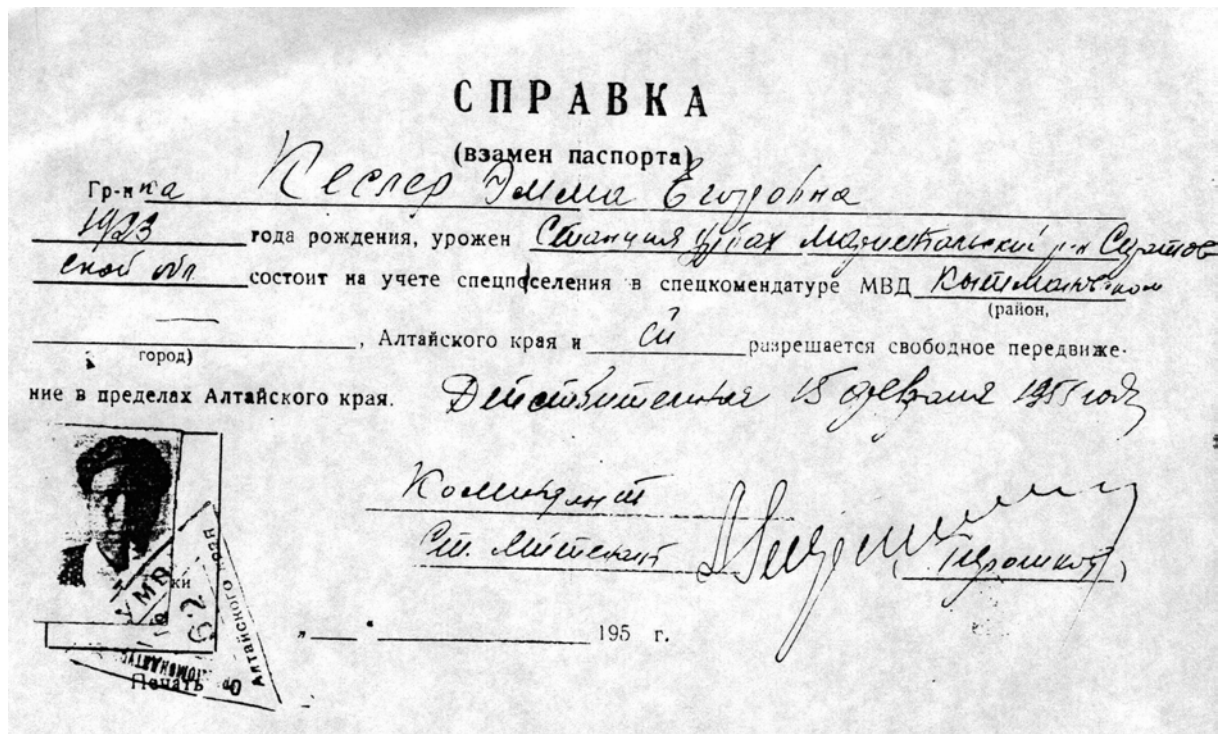 СПРАВКА
(взамен паспорта)
Гр-нка Кеслер Эмма Егоровна
1923 года рождения, урожен Станция Урбах Мариентальский р-н Саратов
ской обл. состоит на учете спецпоселения в спецкомендатуре МВД Кытмановском
(район,
город) , Алтайского края и ей разрешается свободное передвиже-
ние в пределах Алтайского края. Действительна 15 февраля 1955 года
Комендант
Ст. лейтенант
195 г.
УМВД
Алтайского края
Печать